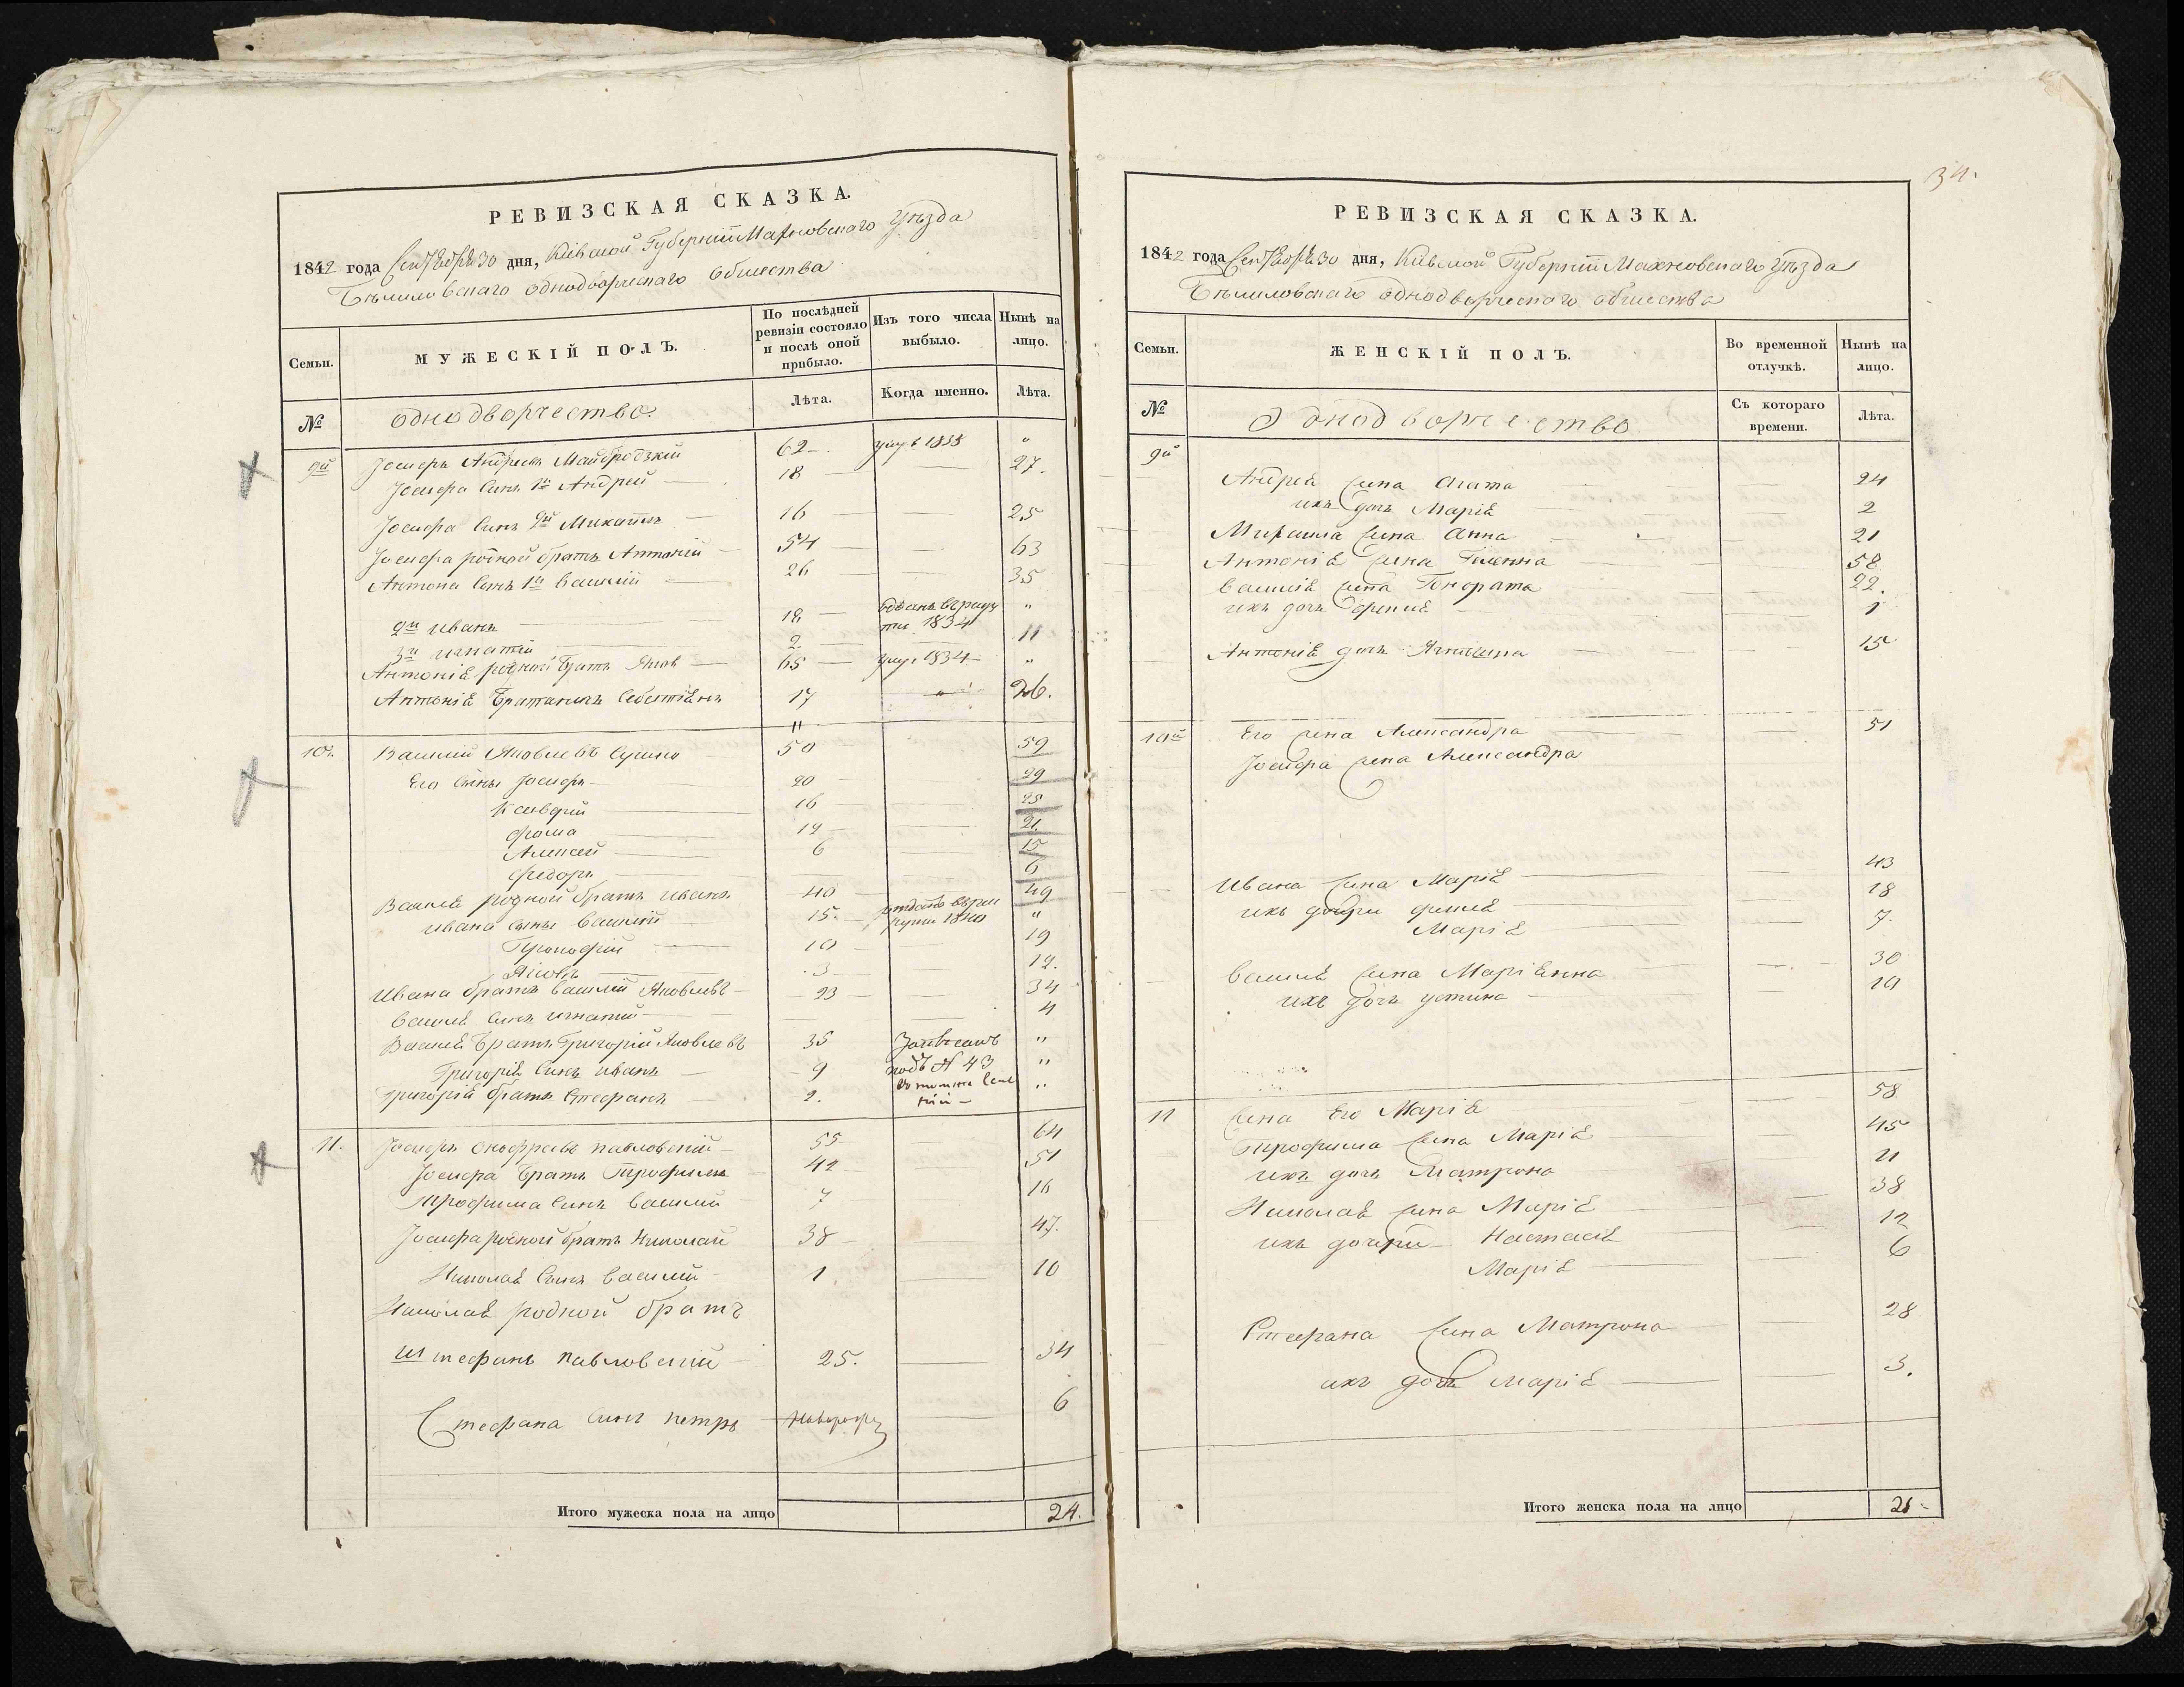 РЕВИЗСКАЯ СКАЗКА.
1842 года Сентября 30 дня, Кіевской Губерніи Махновскаго Уѣзда
Бѣлиловскаго однодворческаго общества
Семьи.
МУЖЕСКІЙ ПОЛЪ.
По послѣдней ревизіи состояло и послѣ оной прибыло.
Изъ того числа выбыло.
Нынѣ на лицо.
№
однодворчество.
Лѣта.
Когда именно.
Лѣта.
9й Іосифъ Андреевъ 62 умр в 1838 "
Іосифа Сынъ 1й Андрей 18 27.
Іосифа Сынъ 2й Михаилъ 16 25
Іосифа родной братъ Антоній 54 63
Антона Сынъ 1й Василій 26 35
2й Иванъ 18 отданъ в рекру
ты 1834 "
3й Игнатій 2 11
Антонія родный братъ Яковъ 65 умр. 1834 "
Антонія Братаничъ Себестіянъ 17 " 26.
10й. Василій Яковлевъ 50 59
Его Сыны Іосифъ 20 29
Ксаверій 16 25
Фома 12 21
Алексей 6 15
Федоръ 6
Василія родной братъ Иванъ 40 49
Ивана сыны Василій 15. отданъ в рек
руты 1840 "
Прокофій 10 19
Яковъ 3 12.
Ивана братъ Василій Яковлевъ 23 34
Василія Сынъ Игнатій 4
Василія Братъ Григорій Яковлевъ 35 Записанъ "
Григорія Сынъ Иванъ 9 подъ № 43 "
Григорія братъ Стефанъ 2. "
11. Іосифъ Павловскій 55 64
Іосифа Братъ Трофимъ 42 51
Трофима Сынъ Василій 7 16
Іосифа родной братъ Николай 38 47.
Николая Сынъ Василій 1 10
Николая родной братъ
Штефанъ Павловскій 25. 34
Стефана Сынъ Петръ 6
Итого мужеска пола на лицо 24.
34.
РЕВИЗСКАЯ СКАЗКА.
1842 года Сентября 30 дня, Кіевской Губерніи Махновскаго Уѣзда
Бѣлиловскаго однодворческаго общества
Семьи.
ЖЕНСКІЙ ПОЛЪ.
Во временной отлучкѣ.
Нынѣ на лицо.
№
Однодворчество
Съ котораго времени.
Лѣта.
9й
Андрея жена Агата 24
ихъ дочь Марія 2
Михаила жена Анна 21
Антонія жена 58
Василія жена Гонората 22.
ихъ дочь 1
Антонія дочь 15
10й Его жена Александра 51
Іосифа жена Александра
Ивана жена Марія 43
ихъ дочери 18
Марія 7.
Василія жена Маріянна 30
ихъ дочь Устина 10
11 жена Его Марія 58
Трофима жена Марія 45
ихъ дочь Матрона 11
Николая жена Марія 38
ихъ дочери Настасія 12
Марія 6
Стефана жена Матрона 28
ихъ дочь Марія 3.
Итого женска пола на лицо 21